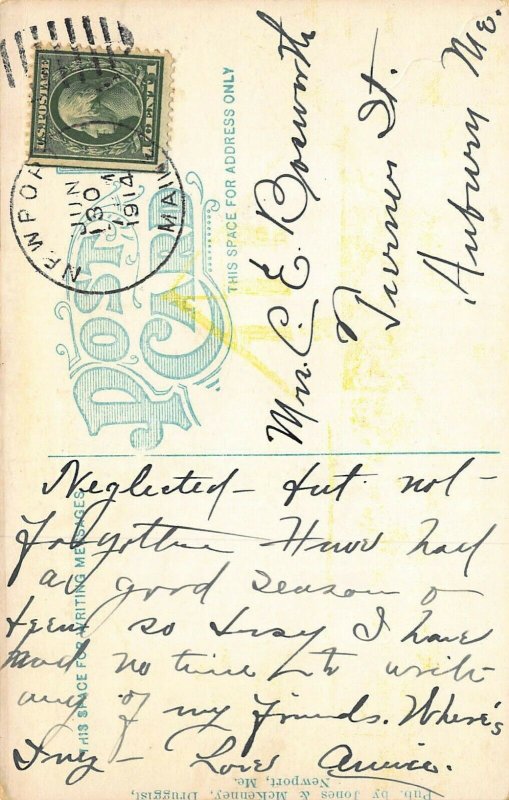 U.S. POSTAGE
1 CENT 1
NEWPO
JUN
30
1914
MAIN
POST CARD
THIS SPACE FOR ADDRESS ONLY
Mrs. C. E. Bosworth
Turner St.
Auburn Me.
THIS SPACE FOR WRITING MESSAGES
Neglected – but not –
forgotten Have had
a good season &
been so busy I have
had no time to write
any of my friends. Where's
Love
Pub. by Jones & McKenney, Druggist,
Newport, Me.